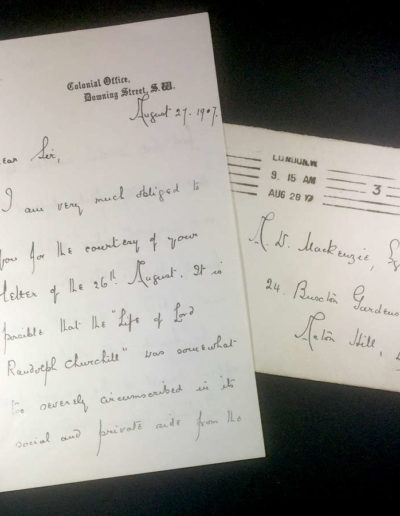 Colonial Office,
Downing Street, S.W.
August 27. 1907.
ear Sir,
I am very much obliged to
you for the courtesy of your
letter of the 26th August. It is
possible that the "Life of Lord
Randolph Churchill" was somewhat
too severely circumscribed in its
social and private side from the
LONDON.W
9. 15 AM
AUG 28 07
3
Mackenzie,
24. Buxton Gardens
Acton Hill,